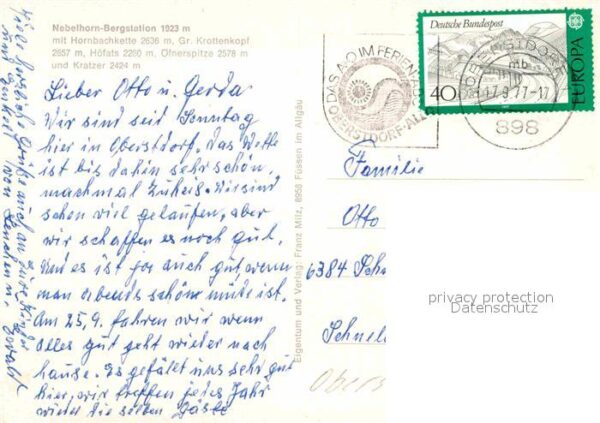 Nebelhorn-Bergstation 1923 m
mit Hornbachkette 2636 m, Gr. Krottenkopf
2657 m, Höfats 2260 m, Öfnerspitze 2578 m
und Kratzer 2424 m
Lieber Otto u. Gerda
Wir sind seit Sonntag
hier in Oberstdorf. Das Wette
ist bis dahin sehr schön,
machmal zu heiß. Wir sind
schon viel gelaufen, aber
wir schaffen es noch gut.
Und es ist ja auch gut, wenn
man abends schön müde ist.
Am 25.9. fahren wir wenn
alles gut geht wieder nach
hause. Es gefällt uns sehr gut
hier, wir treffen jedes Jahr
wieder die selben Gäste
Viele herzliche Grüße auch an eure Kinder
und von Lenchen u. Ewald
Eigentum und Verlag: Franz Milz, 8958 Füssen im Allgäu
DAS A.O IM FERIEN
OBERSTDORF-ALL
Deutsche Bundespost
40
EUROPA
OBERSTDORF
mb
17.9.77-17
898
Familie
Otto
6384 Sch
Schnel
Obers
privacy protection
Datenschutz